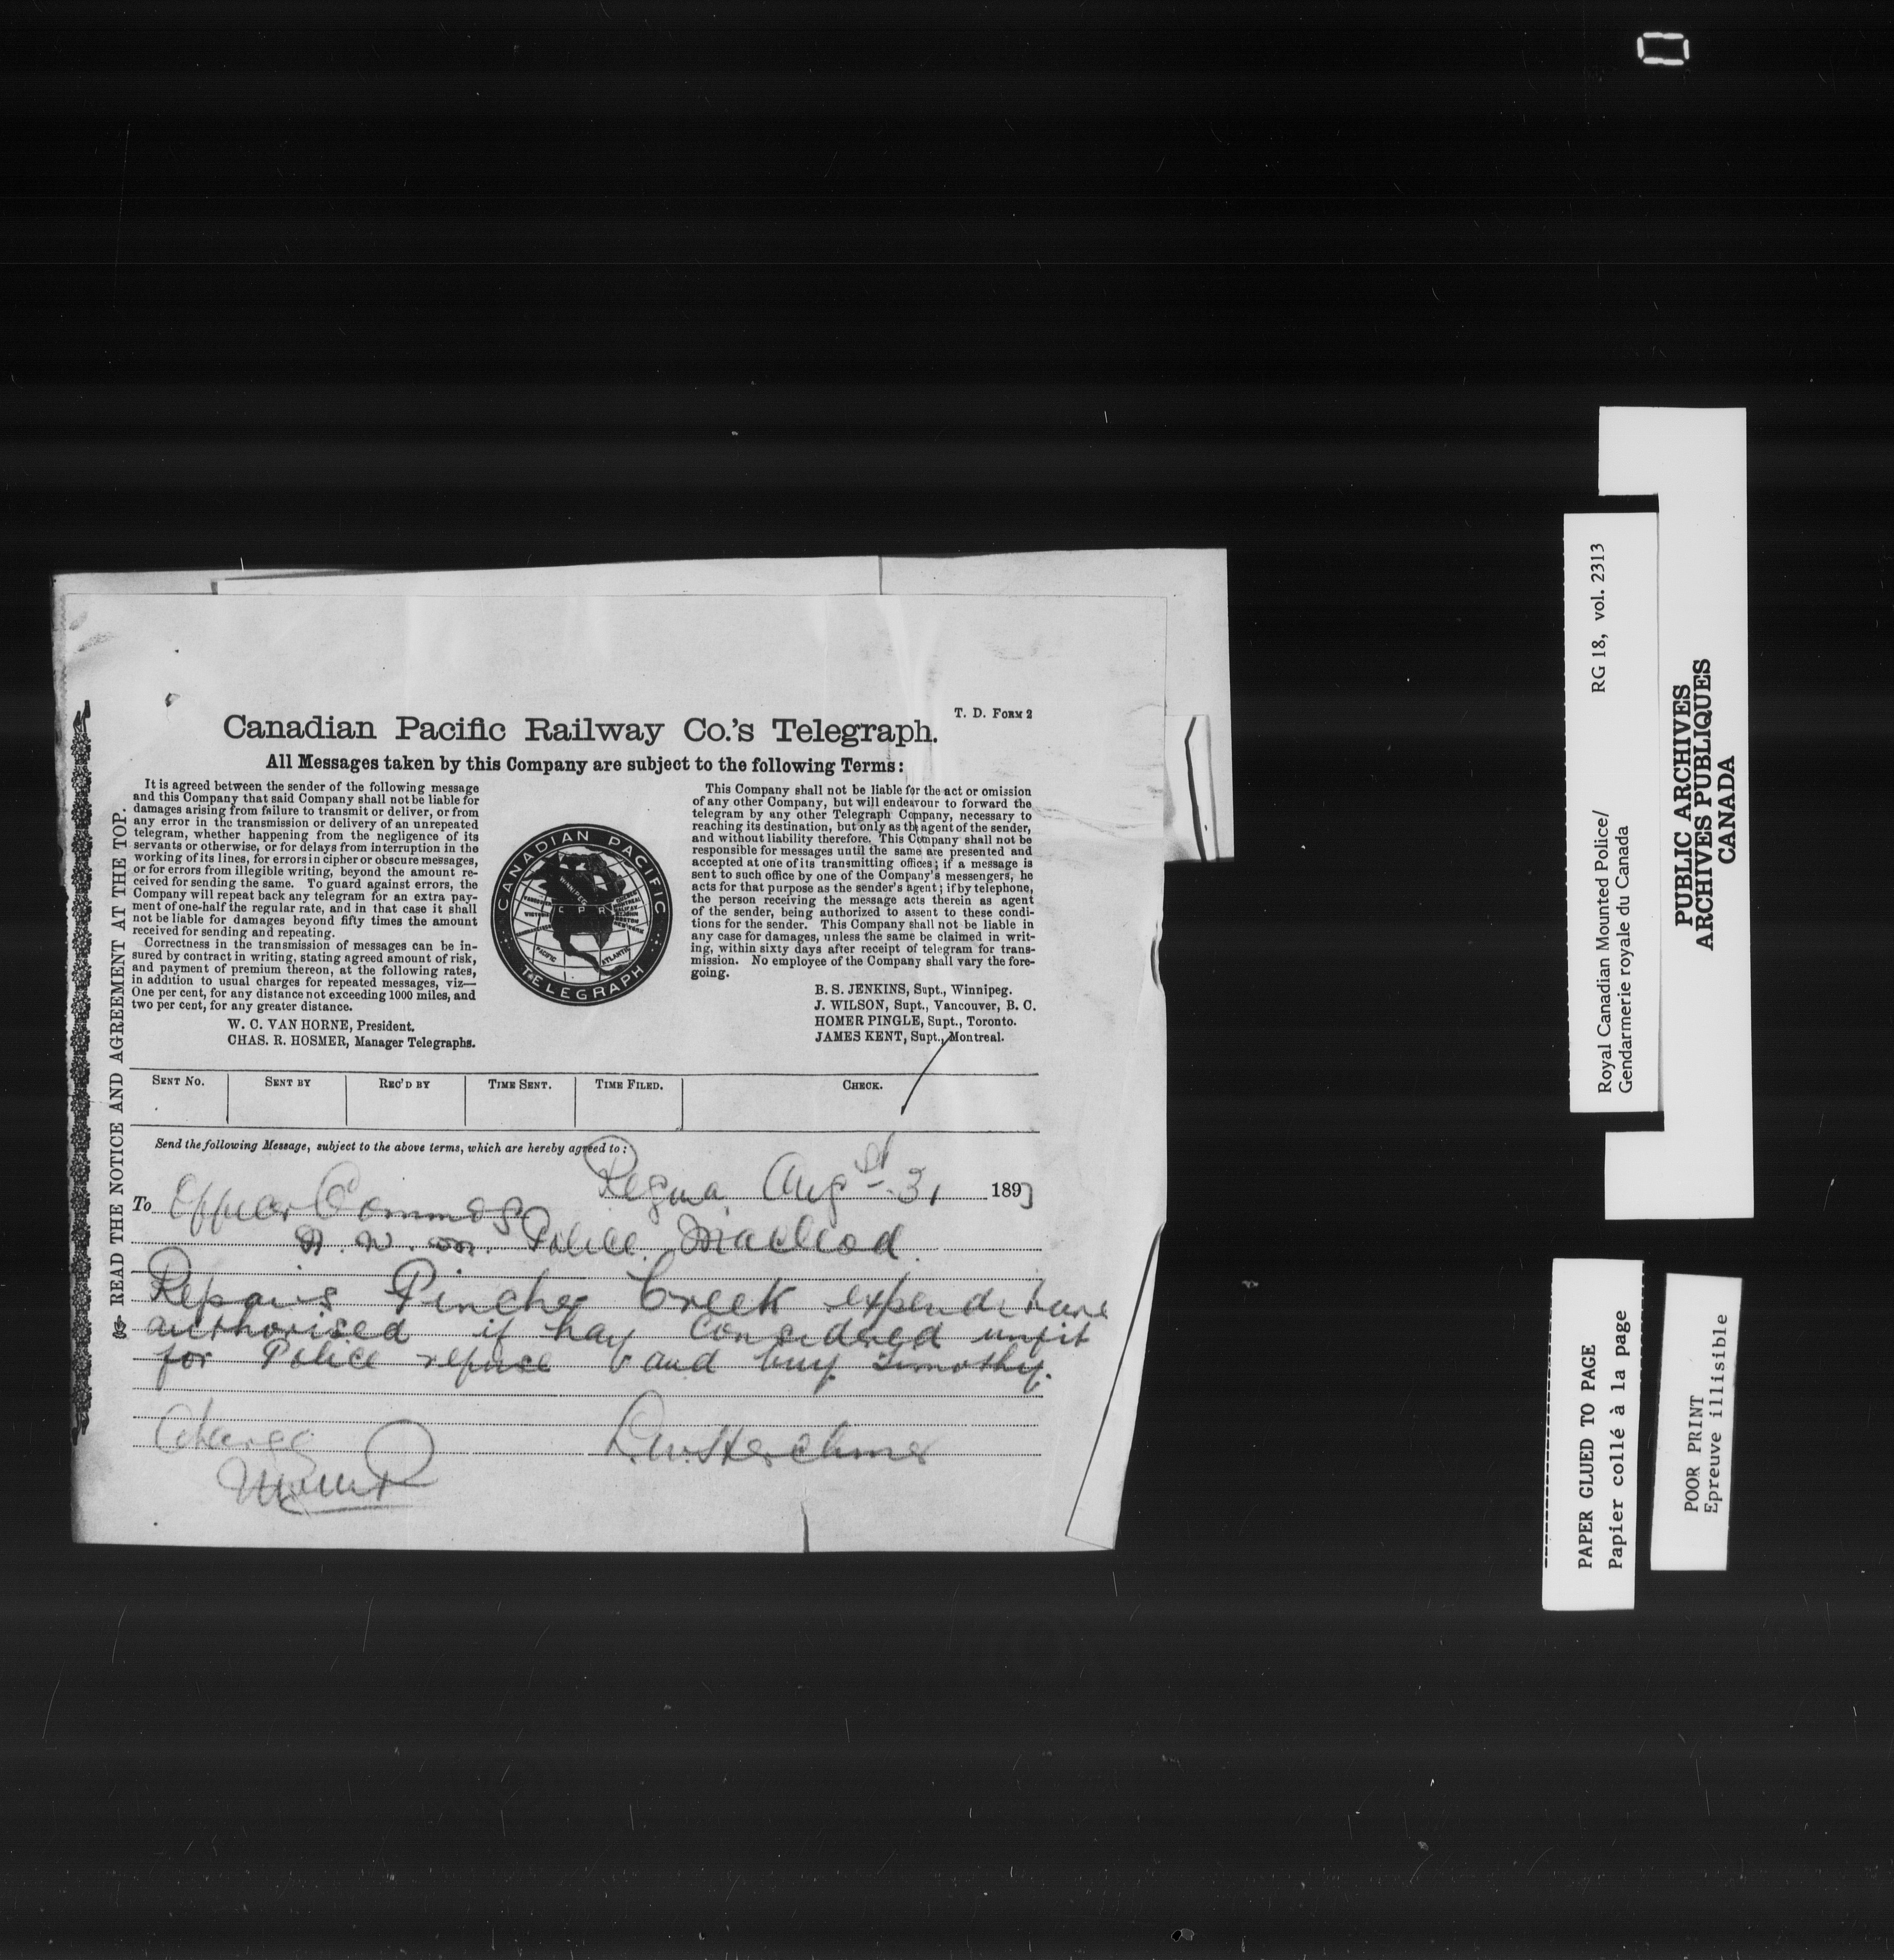 T. D. FORM 2
Canadian Pacific Railway Co.'s Telegraph.
All Messages taken by this Company are subject to the following Terms:
It is agreed between the sender of the following message
and this Company that said Company shall not be liable for
damages arising from failure to transmit or deliver, or from
any error in the transmission or delivery of an unrepeated
telegram, whether happening from the negligence of its
servants or otherwise, or for delays from interruption in the
working of its lines, for errors in cipher or obscure messages,
or for errors from illegible writing, beyond the amount re-
ceived for sending the same. To guard against errors, the
Company will repeat back any telegram for an extra pay-
ment of one-half the regular rate, and in that case it shall
not be liable for damages beyond fifty times the amount
received for sending and repeating.
Correctness in the transmission of messages can be in-
sured by contract in writing, stating agreed amount of risk,
and payment of premium thereon, at the following rates,
in addition to usual charges for repeated messages, viz—
One per cent, for any distance not exceeding 1000 miles, and
two per cent, for any greater distance.
W. C. VAN HORNE, President.
CHAS. R. HOSMER, Manager Telegraphs.
CANADIAN PACIFIC
WINNIPEG
C P R
PACIFIC
ATLANTIC
TELEGRAPH
This Company shall not be liable for the act or omission
of any other Company, but will endeavour to forward the
telegram by any other Telegraph Company, necessary to
reaching its destination, but only as the agent of the sender,
and without liability therefore. This Company shall not be
responsible for messages until the same are presented and
accepted at one of its transmitting offices; if a message is
sent to such office by one of the Company's messengers, he
acts for that purpose as the sender's agent; if by telephone,
the person receiving the message acts therein as agent
of the sender, being authorized to assent to these condi-
tions for the sender. This Company shall not be liable in
any case for damages, unless the same be claimed in writ-
ing, within sixty days after receipt of telegram for trans-
mission. No employee of the Company shall vary the fore-
going.
B. S. JENKINS, Supt., Winnipeg.
J. WILSON, Supt., Vancouver, B. C.
HOMER PINGLE, Supt., Toronto.
JAMES KENT, Supt., Montreal.
READ THE NOTICE AND AGREEMENT AT THE TOP.
SENT No. SENT BY REC'D BY TIME SENT. TIME FILED. CHECK.
Send the following Message, subject to the above terms, which are hereby agreed to:
Regina Aug st 31 189
To Officer Commdg
N. W. M. Police Macleod
Repairs Pincher Creek expenditure
authorised if hay considered unfit
for Police refuse and buy Timothy.
Charge
L. W. Herchmer
RG 18, vol. 2313
Royal Canadian Mounted Police/
Gendarmerie royale du Canada
PUBLIC ARCHIVES
ARCHIVES PUBLIQUES
CANADA
PAPER GLUED TO PAGE
Papier collé à la page
POOR PRINT
Epreuve illisible